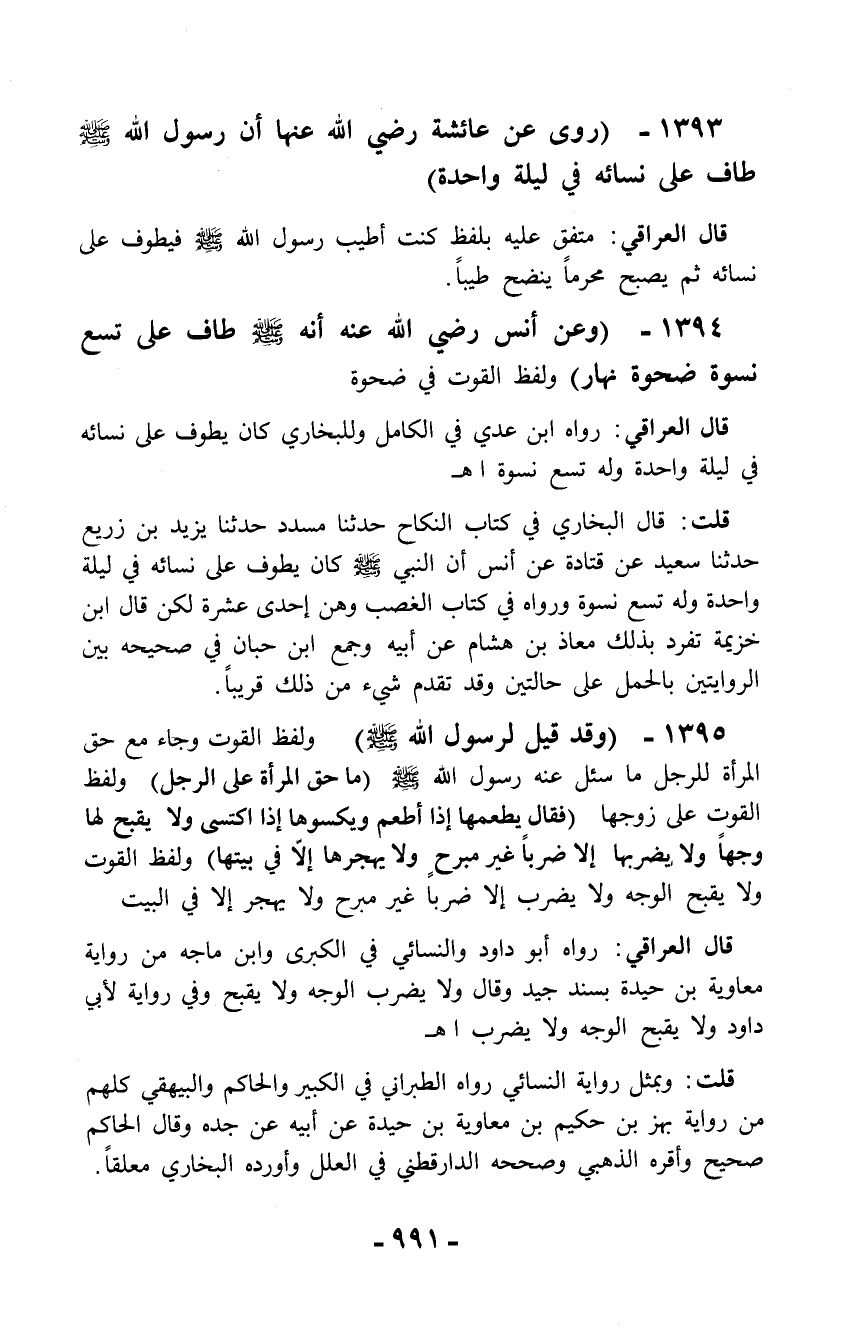 ١٣٩٣ - (روى عن عائشة رضي الله عنها أن رسول الله ﷺ
طاف على نسائه في ليلة واحدة)
قال العراقي: متفق عليه بلفظ كنت أطيب رسول الله ﷺ فيطوف على
نسائه ثم يصبح محرماً ينضح طيباً.
١٣٩٤ - (وعن أنس رضي الله عنه أنه ﷺ طاف على تسع
نسوة ضحوة نهار) ولفظ القوت في ضحوة
قال العراقي: رواه ابن عدي في الكامل وللبخاري كان يطوف على نسائه
في ليلة واحدة وله تسع نسوة ا هـ
قلت: قال البخاري في كتاب النكاح حدثنا مسدد حدثنا يزيد بن زريع
حدثنا سعيد عن قتادة عن أنس أن النبي ﷺ كان يطوف على نسائه في ليلة
واحدة وله تسع نسوة ورواه في كتاب الغصب وهن إحدى عشرة لكن قال ابن
خزيمة تفرد بذلك معاذ بن هشام عن أبيه وجمع ابن حبان في صحيحه بين
الروايتين بالحمل على حالتين وقد تقدم شيء من ذلك قريباً.
١٣٩٥ - (وقد قيل لرسول الله ﷺ) ولفظ القوت وجاء مع حق
المرأة للرجل ما سئل عنه رسول الله ﷺ (ما حق المرأة على الرجل) ولفظ
القوت على زوجها (فقال يطعمها إذا أطعم ويكسوها إذا اكتسى ولا يقبح لها
وجهاً ولا يضربها إلا ضرباً غير مبرحٍ ولا يهجرها إلّا في بيتها) ولفظ القوت
ولا يقبح الوجه ولا يضرب إلا ضرباً غير مبرح ولا يهجر إلا في البيت
قال العراقي: رواه أبو داود والنسائي في الكبرى وابن ماجه من رواية
معاوية بن حيدة بسند جيد وقال ولا يضرب الوجه ولا يقبح وفي رواية لأبي
داود ولا يقبح الوجه ولا يضرب ا هـ
قلت: وبمثل رواية النسائي رواه الطبراني في الكبير والحاكم والبيهقي كلهم
من رواية بهز بن حكيم بن معاوية بن حيدة عن أبيه عن جده وقال الحاكم
صحيح وأقره الذهبي وصححه الدارقطني في العلل وأورده البخاري معلقاً.
- ٩٩١ -